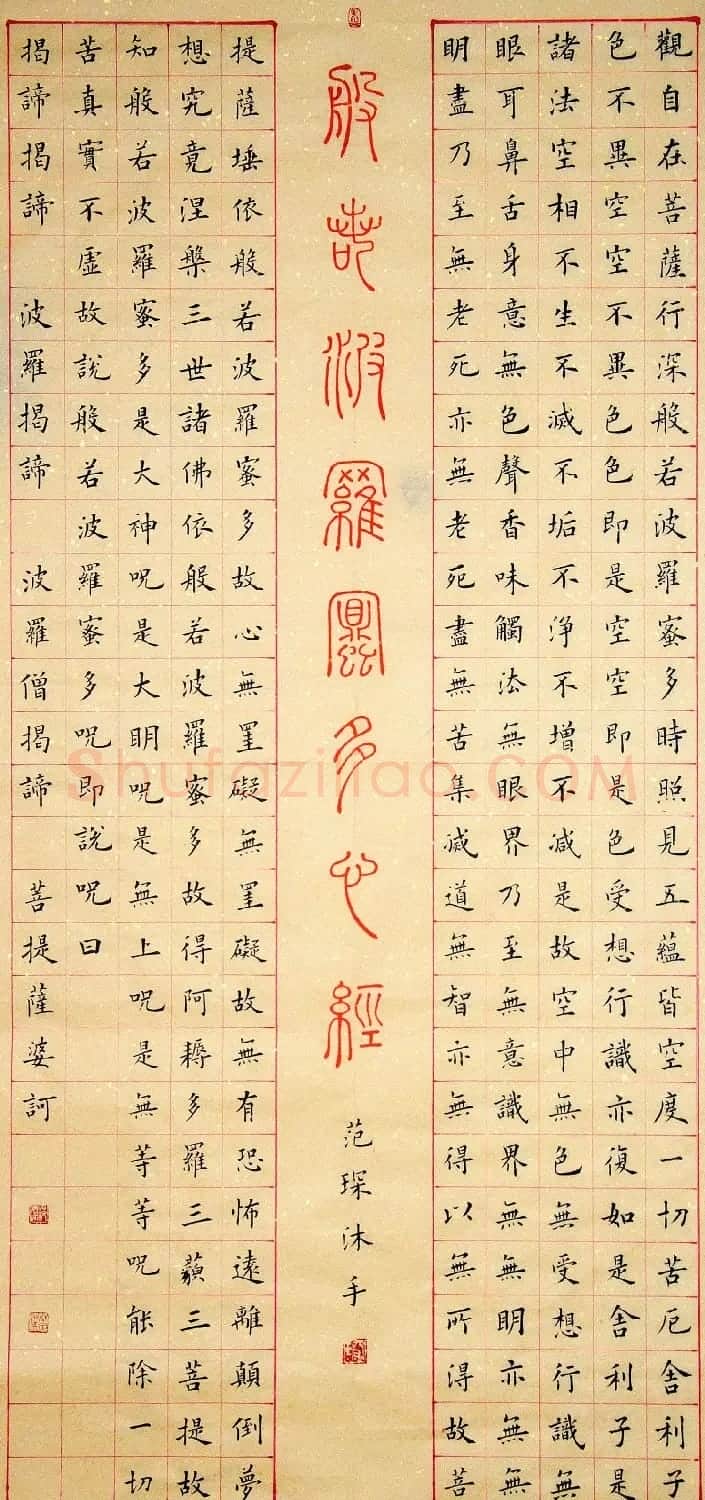 觀自在菩薩行深般若波羅蜜多時照見五蘊皆空度一切苦厄舍利子
色不異空空不異色色即是空空即是色受想行識亦復如是舍利子是
諸法空相不生不滅不垢不淨不增不減是故空中無色無受想行識無
眼耳鼻舌身意無色聲香味觸法無眼界乃至無意識界無無明亦無無
明盡乃至無老死亦無老死盡無苦集滅道無智亦無得以無所得故菩
般若波羅蜜多心經
范琛沐手
提薩埵依般若波羅蜜多故心無罣礙無罣礙故無有恐怖遠離顛倒夢
想究竟涅槃三世諸佛依般若波羅蜜多故得阿耨多羅三藐三菩提故
知般若波羅蜜多是大神呪是大明呪是無上呪是無等等呪能除一切
苦真實不虛故說般若波羅蜜多呪即說呪曰
揭諦揭諦 波羅揭諦 波羅僧揭諦 菩提薩婆訶
Shufaziliao.COM